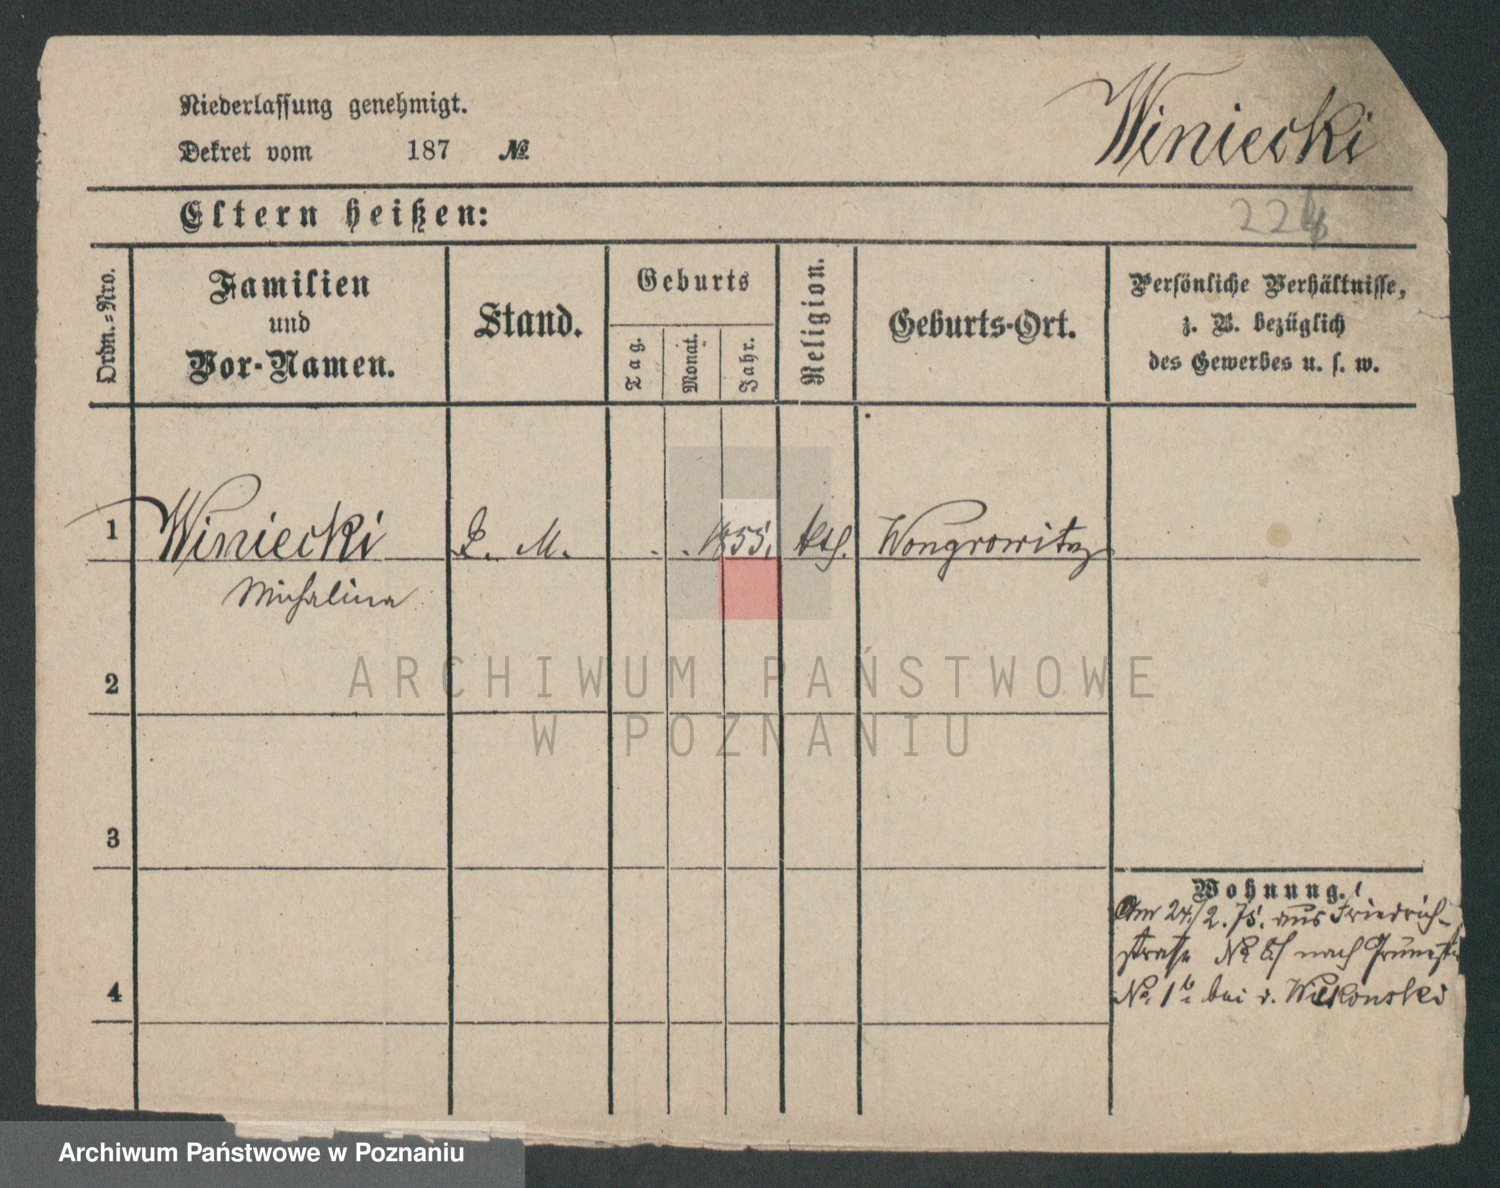 Niederlassung genehmigt.
Dekret vom 187 №
Winiecki
Eltern heißen:
224
Ordn.-Nro.
Familien
und
Vor-Namen.
Stand.
Geburts
Tag.
Monat.
Jahr.
Religion.
Geburts-Ort.
Persönliche Verhältnisse,
z. B. bezüglich
des Gewerbes u. s. w.
1
Winiecki
Michalina
D. M.
1855.
kath.
Wongrowitz
2
3
4
Wohnung.
Am 24/2. 75. aus Friedrich-
straße No nach
No. 1 b bei v. Wilkonski
ARCHIWUM PAŃSTWOWE
W POZNANIU
Archiwum Państwowe w Poznaniu